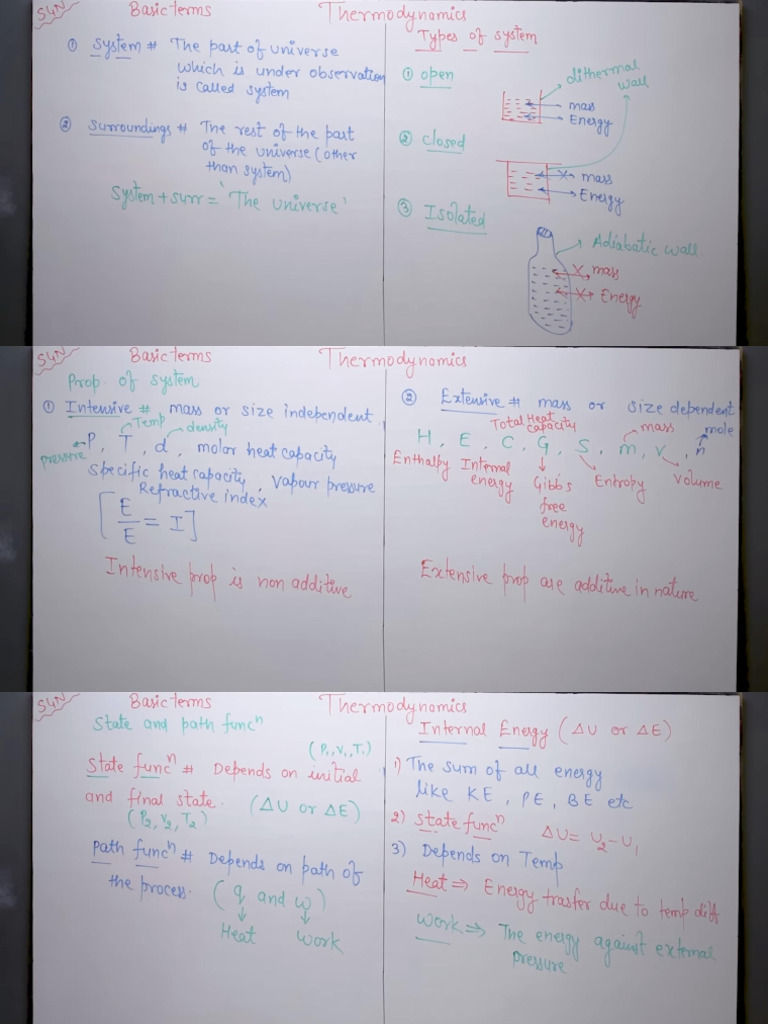 S4N
Basic terms
Thermodynamics
① System # The part of universe
which is under observation
is called system
② Surroundings # The rest of the part
of the universe (other
than system)
System + surr = 'The universe'
Types of system
① open
dithermal
wall
mass
Energy
② closed
mass
Energy
③ Isolated
Adiabatic wall
mass
Energy
S4N
Basic terms
Thermodynamics
Prop. of system
① Intensive # mass or size independent
Temp
density
pressure
P, T, d, molar heat capacity
Specific heat capacity, Vapour pressure
Refractive index
[E/E = I]
Intensive prop is non additive
② Extensive # mass or size dependent
Total Heat
capacity
mass
mole
H, E, C, G, S, m, V, n
Enthalpy
Internal
energy
Gibbs
free
energy
Entropy
Volume
Extensive prop are additive in nature
S4N
Basic terms
Thermodynamics
State and path funcⁿ
(P₁,V₁,T₁)
State funcⁿ # Depends on initial
and final state. (ΔU or ΔE)
(P₂,V₂,T₂)
Path funcⁿ # Depends on path of
the process. (q and w)
Heat Work
Internal Energy (ΔU or ΔE)
1) The sum of all energy
like KE, PE, BE etc
2) State funcⁿ ΔU = U₂-U₁
3) Depends on Temp
Heat ⇒ Energy trasfer due to temp diff
Work ⇒ The energy against external
pressure